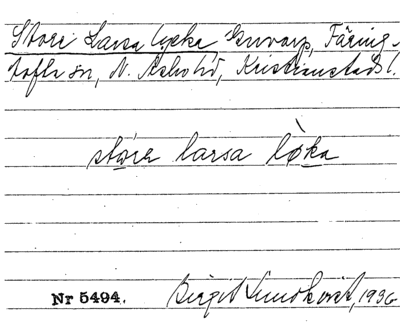 Store Larsa lycka Gunnarp, Färing-
tofta sn, N. Åsbo hd, Kristianstads l.
störe larsa lø̀ka
Nr 5494. Birgit Lundkvist, 1936